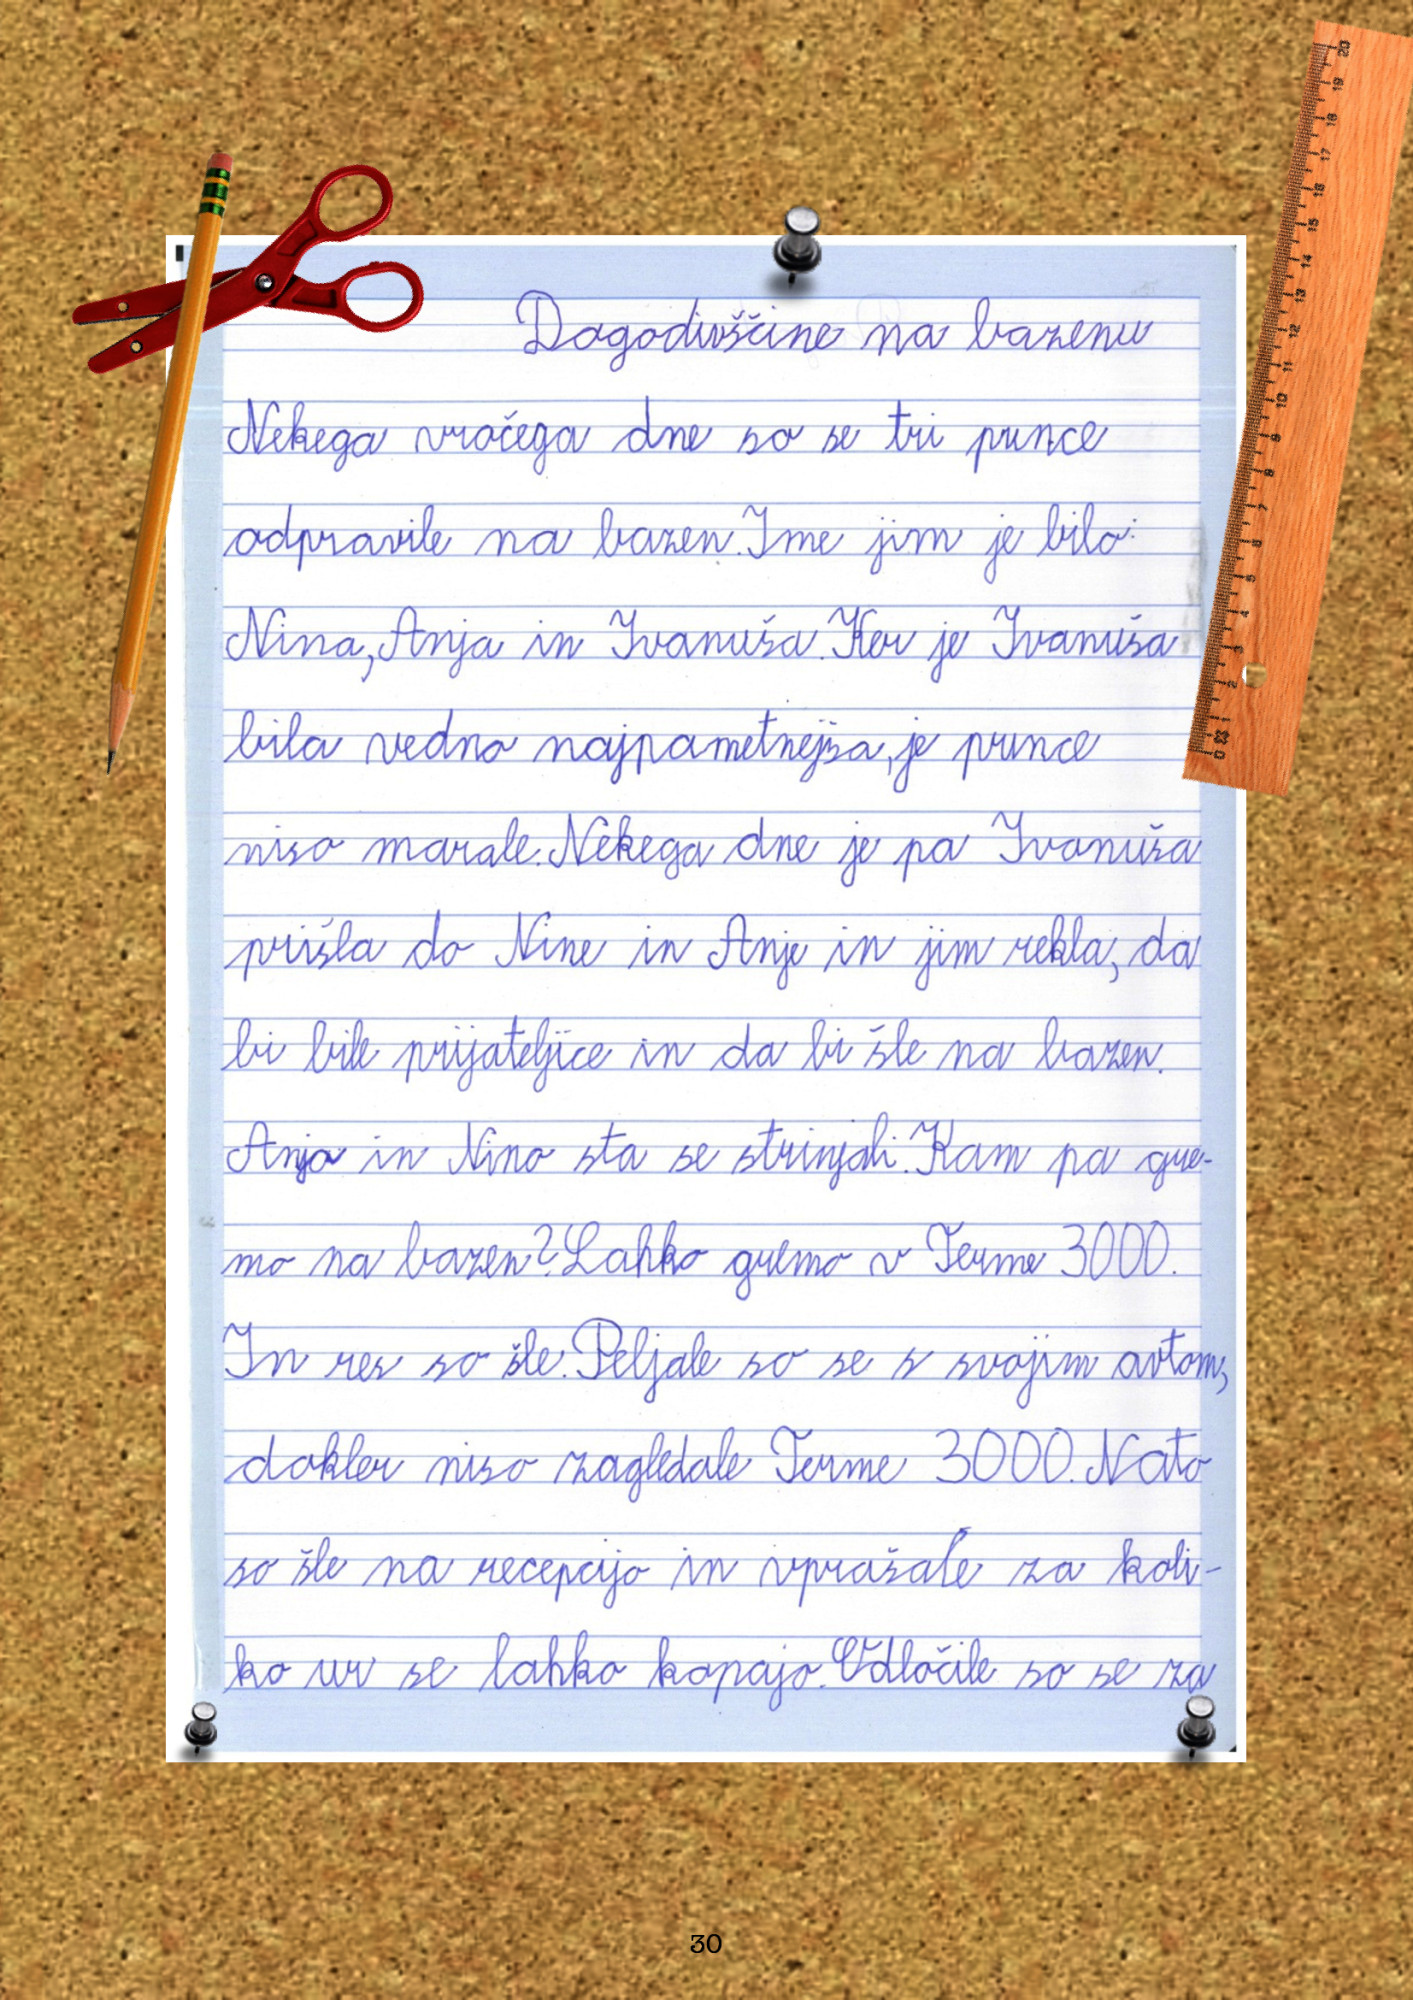 Dogodivščine na bazenu
Nekega vročega dne so se tri punce
odpravile na bazen. Ime jim je bilo:
Nina, Anja in Ivanuša. Ker je Ivanuša
bila vedno najpametnejša, je punce
niso marale. Nekega dne je pa Ivanuša
prišla do Nine in Anje in jim rekla, da
bi bile prijateljice in da bi šle na bazen.
Anja in Nina sta se strinjali. Kam pa gre-
mo na bazen? Lahko gremo v Terme 3000.
In res so šle. Peljale so se s svojim avtom,
dokler niso zagledale Terme 3000. Nato
so šle na recepcijo in vprašale za koli-
ko ur se lahko kopajo. Odločile so se za
30